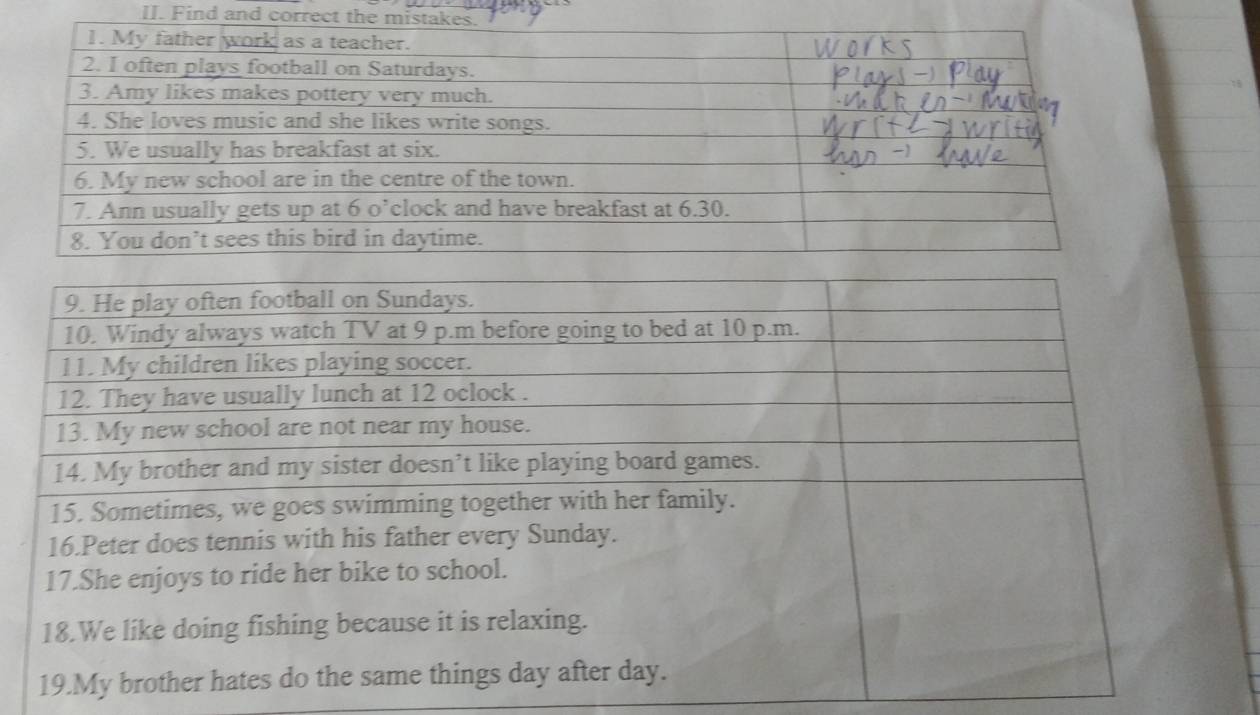 II. Find and correct the mistakes.
1. My father work as a teacher. works
2. I often plays football on Saturdays. plays → play
3. Amy likes makes pottery very much. makes → making
4. She loves music and she likes write songs. write → writing
5. We usually has breakfast at six. has → have
6. My new school are in the centre of the town.
7. Ann usually gets up at 6 o’clock and have breakfast at 6.30.
8. You don’t sees this bird in daytime.
9. He play often football on Sundays.
10. Windy always watch TV at 9 p.m before going to bed at 10 p.m.
11. My children likes playing soccer.
12. They have usually lunch at 12 oclock .
13. My new school are not near my house.
14. My brother and my sister doesn’t like playing board games.
15. Sometimes, we goes swimming together with her family.
16.Peter does tennis with his father every Sunday.
17.She enjoys to ride her bike to school.
18.We like doing fishing because it is relaxing.
19.My brother hates do the same things day after day.